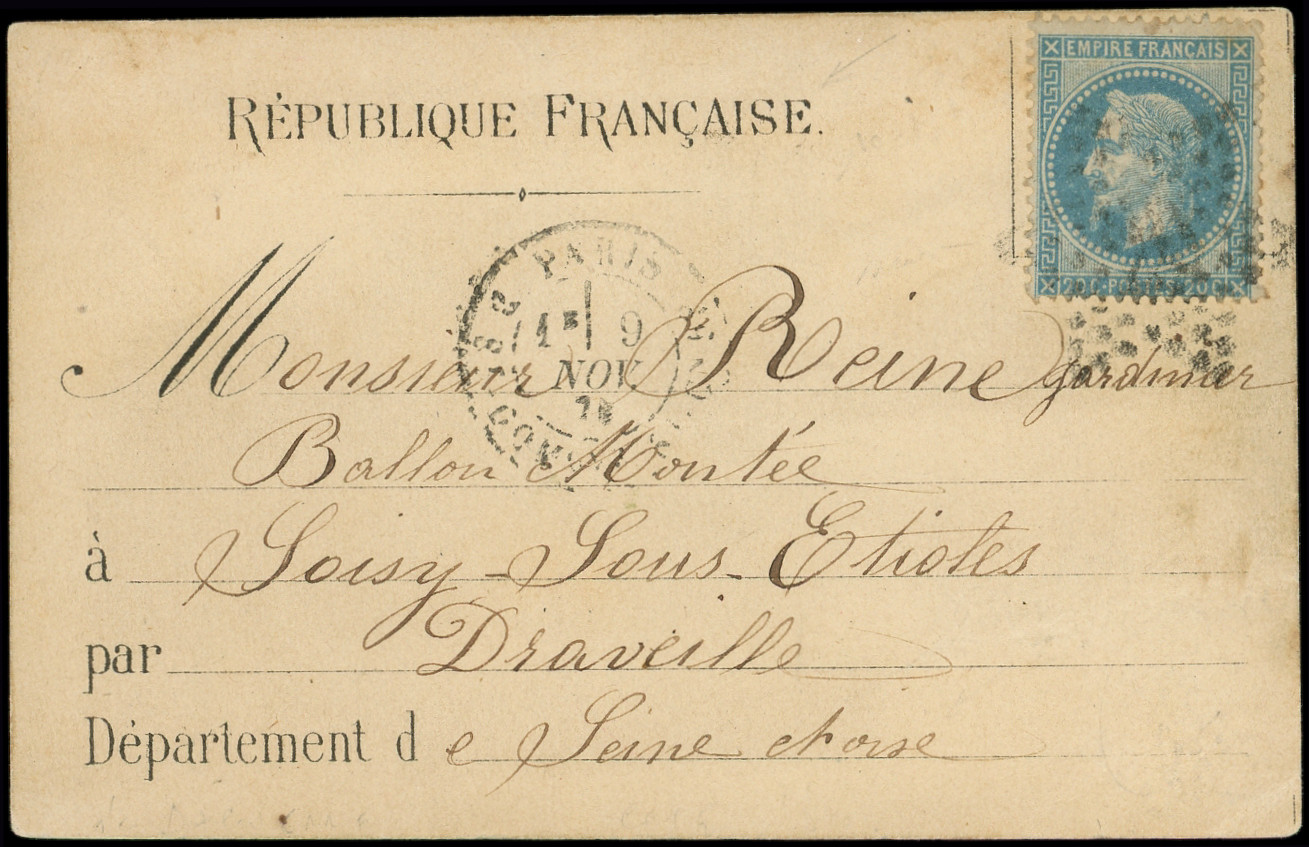 EMPIRE FRANÇAIS
20 C · POSTES · 20 C
RÉPUBLIQUE FRANÇAISE.
PARIS
1E 9
NOV
Monsieur Reine jardinier
Ballon Montée
à Soisy-Sous-Etioles
par Draveille
Département de Seine et oise